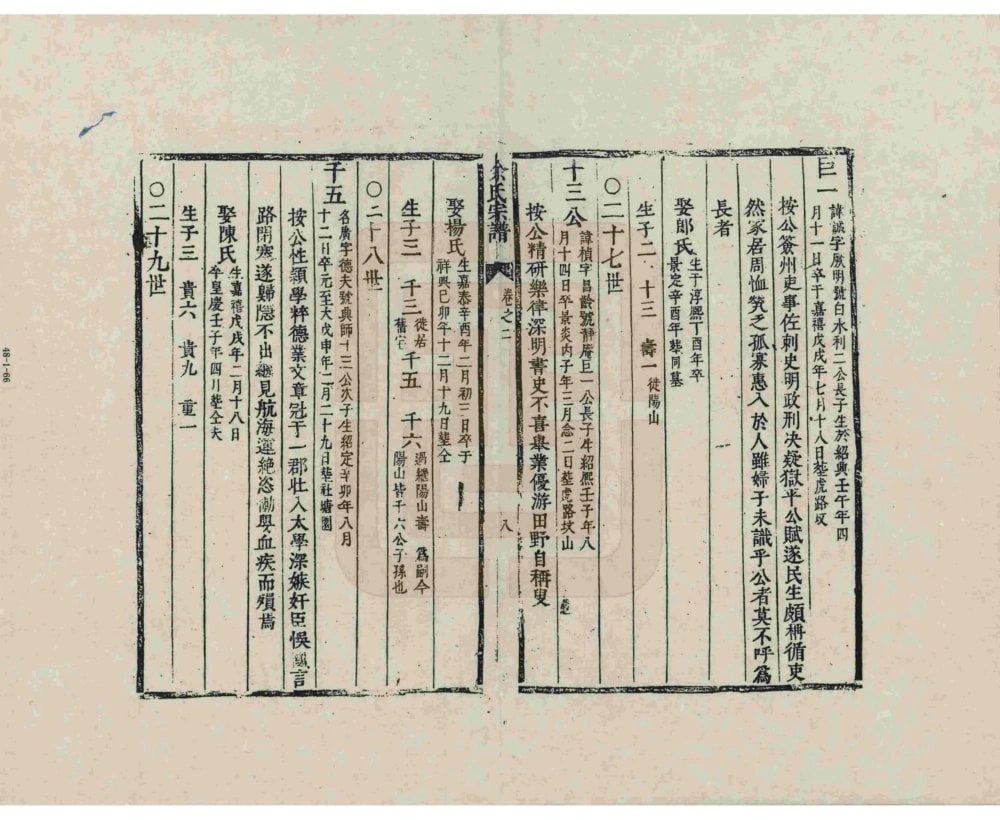 巨一
諱誠字厥明號白水利二公長子生於紹興壬午年四
月十一日卒于嘉禧戊戌年七月十八日塟虎路坟
按公簽州吏事佐刺史明政刑决疑獄平公賦遂民生頗稱循吏
然家居周恤煢乏孤寡惠入於人雖婦子未識乎公者莫不呼為
長者
娶郎氏
生于淳熙丁酉年卒
景定辛酉年塟同墓
生子二 十三 壽一徙陽山
○二十七世
十三公
諱楨字昌齡號靜庵巨一公長子生紹熙壬子年八
月十四日卒景炎内子年三月念二日塟虎路坟山
按公精研樂律深明書史不喜舉業優游田野自稱叟
余氏宗譜 卷之二 八
娶楊氏
生嘉泰辛酉年二月初三日卒于
祥興已卯年十二月十九日塟仝
生子三 千三
徙居
舊宅
千五 千六
過繼陽山壽 為嗣今
陽山皆千六公子孫也
○二十八世
千五
名廣字德夫號典師十三公次子生紹定辛卯年八月
十二日卒元至大戊申年二月二十九日塟社塘園
按公性頴學粹德業文章冠于一郡壯入太學深嫉奸臣悞國言
路閉塞遂歸隱不出繼見航海運絶恣 血疾而殞焉
娶陳氏
生嘉禧戊戌年二月十八日
卒皇慶壬子年四川塟仝夫
生子三 貴六 貴九 重一
○二十九世
48-1-66